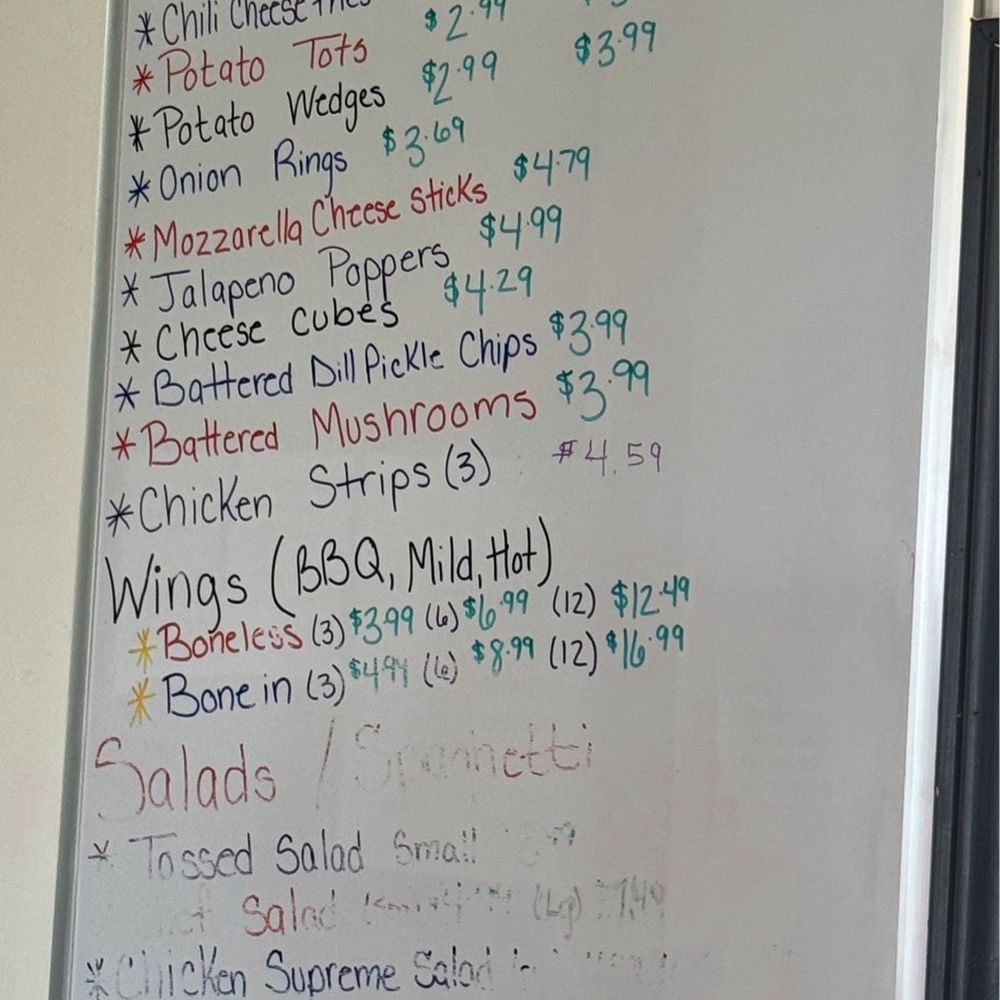 * Chili Cheese Fries
* Potato Tots $2.99
* Potato Wedges $2.99 $3.99
* Onion Rings $3.69
* Mozzarella Cheese Sticks $4.79
* Jalapeno Poppers $4.99
* Cheese Cubes $4.29
* Battered Dill Pickle Chips $3.99
* Battered Mushrooms $3.99
* Chicken Strips (3) $4.59
Wings (BBQ, Mild, Hot)
* Boneless (3) $3.99 (6) $6.99 (12) $12.49
* Bone in (3) $4.99 (6) $8.99 (12) $16.99
Salads / Spaghetti
* Tossed Salad Small
Salad (Lg)
* Chicken Supreme Salad